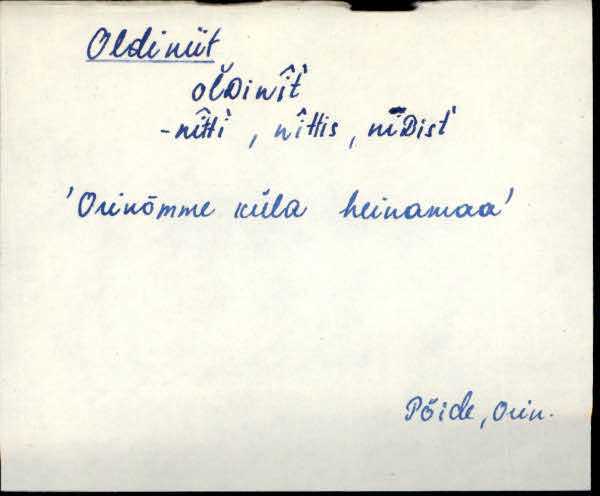 Oldiniit
olDinît́
-nîtti, nîttis, nīDist́
'Orinõmme küla heinamaa'
Pöide, Orin.